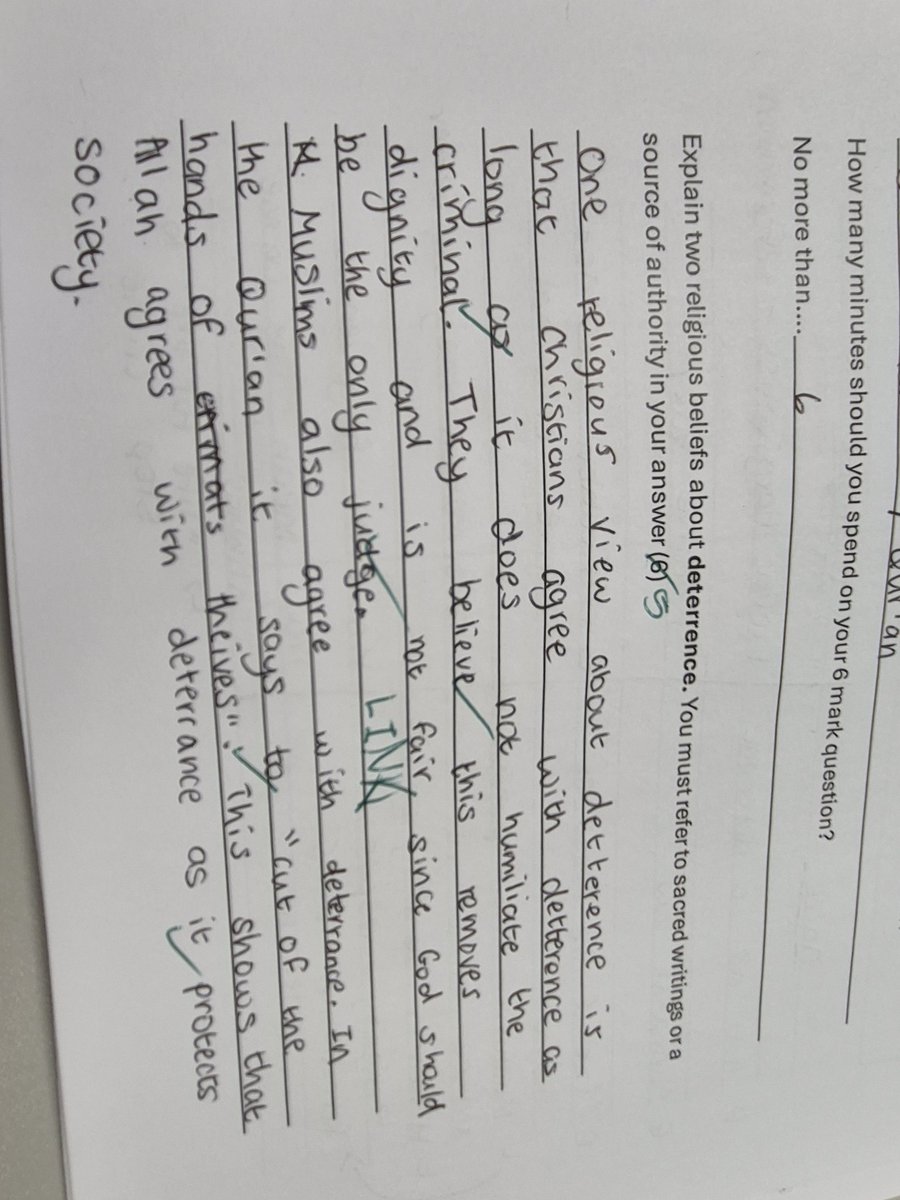 Qur'an
How many minutes should you spend on your 6 mark question?
No more than.... 6
Explain two religious beliefs about deterrence. You must refer to sacred writings or a
source of authority in your answer (6) 5
One religious view about detterence is
that Christians agree with detterence as
long as it does not humiliate the
criminal. They believe this removes
dignity and is not fair, since God should
be the only judge. LINK
M. Muslims also agree with deterrance. In
the Qur'an it says to "cut of the
hands of theives". This shows that
Allah agrees with deterrance as it protects
society.